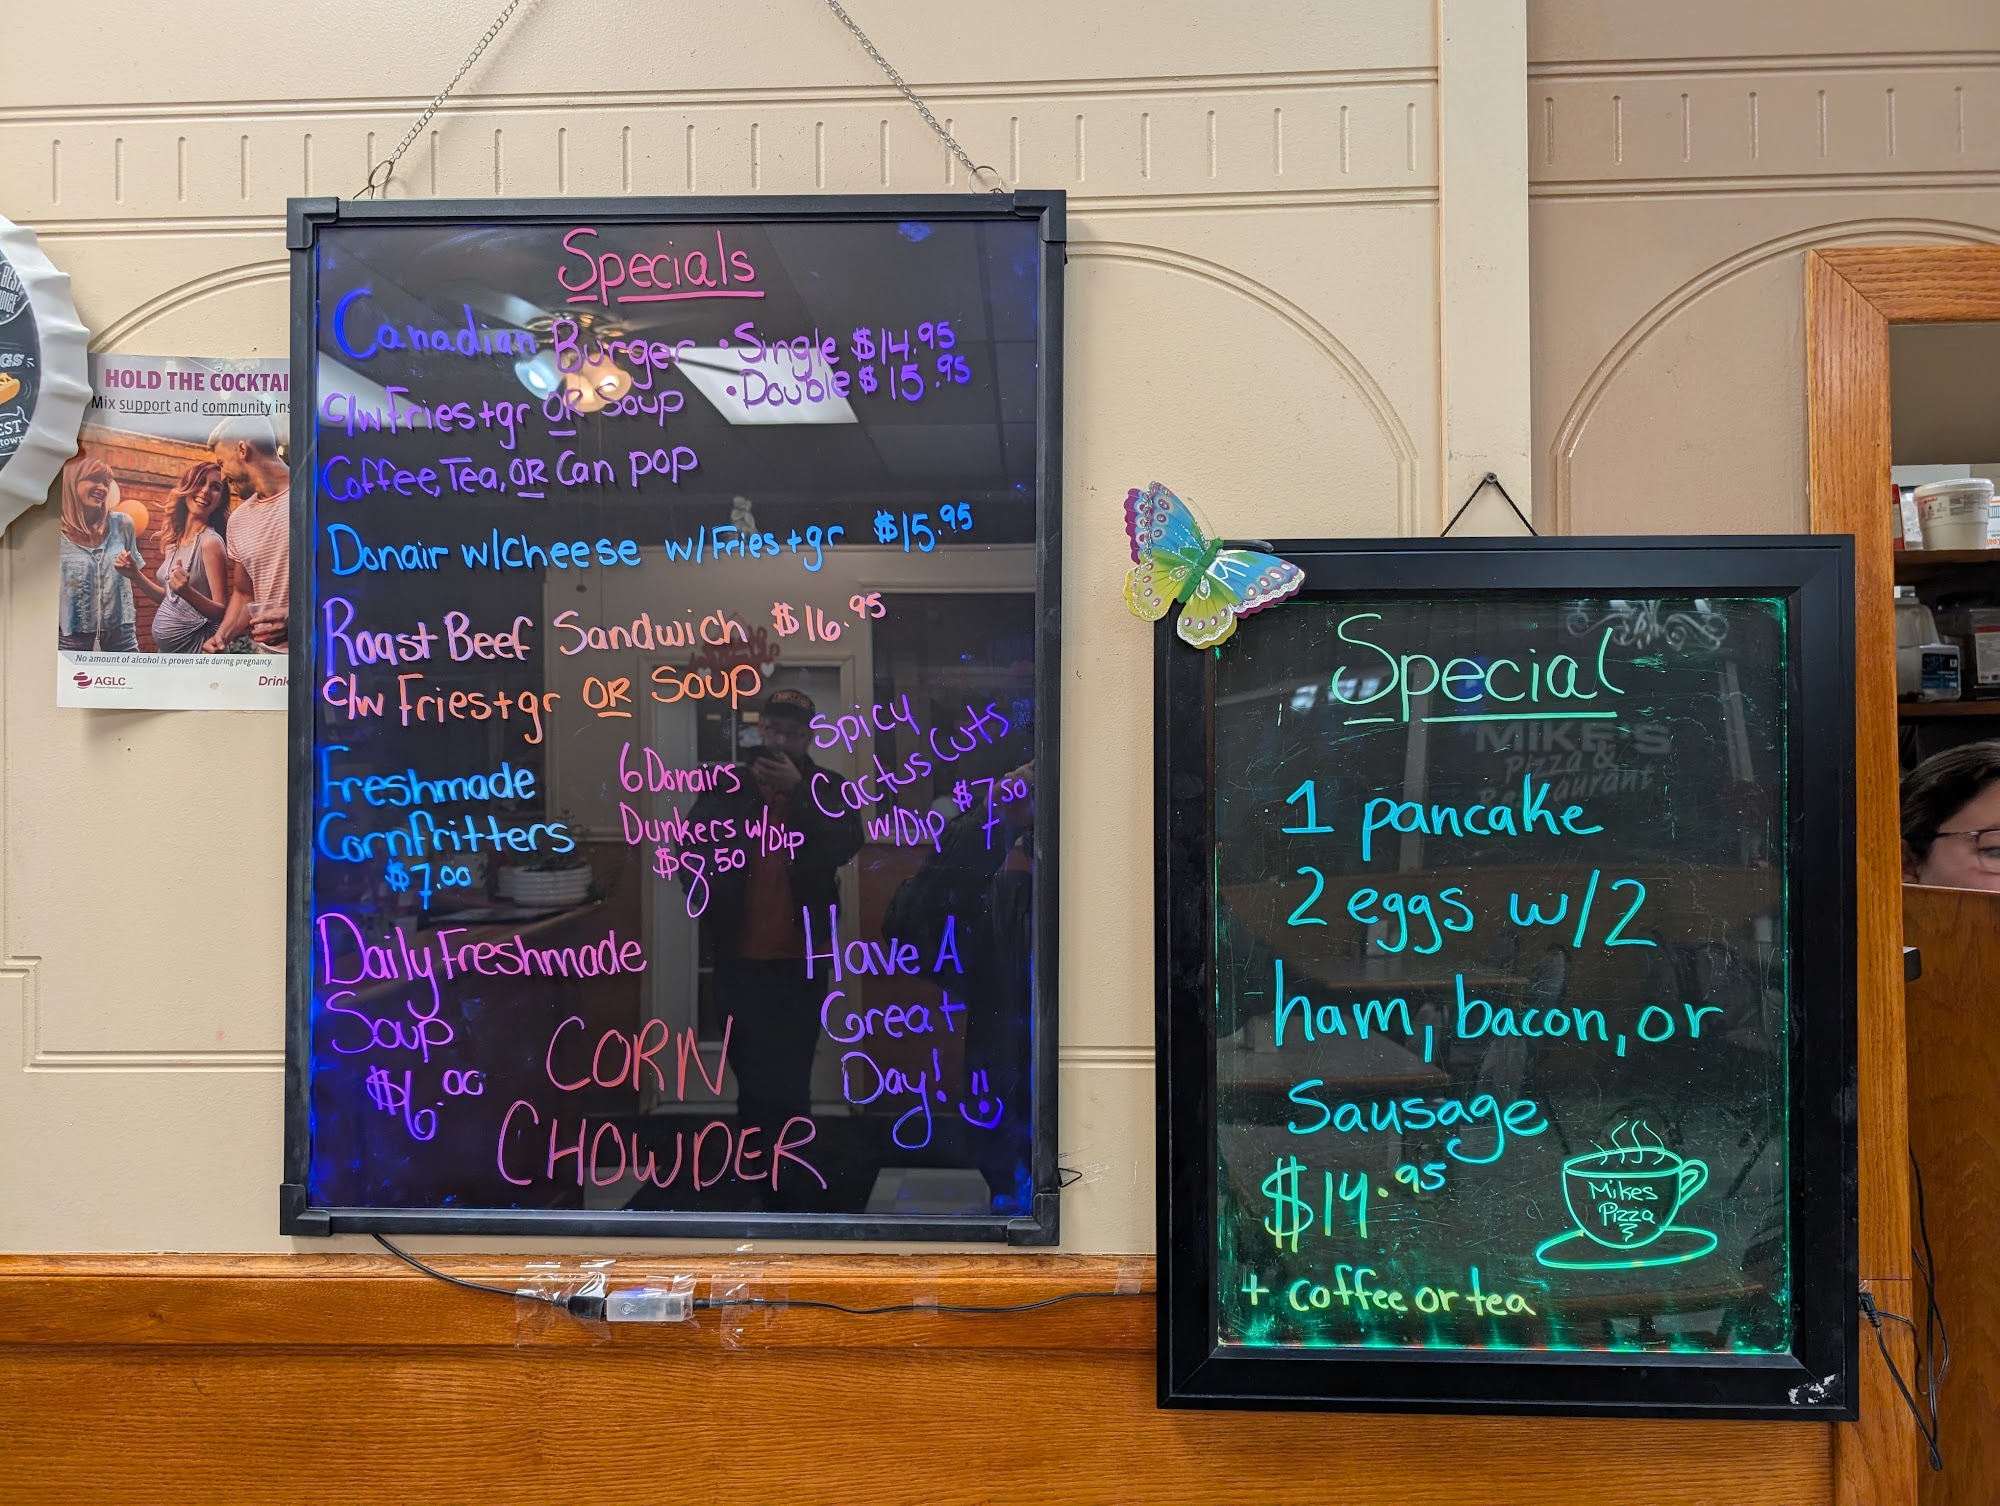 Specials
Canadian Burger • Single $14.95
• Double $15.95
c/w Fries+gr OR Soup
Coffee, Tea, OR Can pop
Donair w/Cheese w/Fries+gr $15.95
Roast Beef Sandwich $16.95
c/w Fries+gr OR Soup
Freshmade
Cornfritters
$7.00
6 Donairs
Dunkers w/Dip
$8.50
Spicy
Cactus Cuts
w/Dip $7.50
Daily Freshmade
Soup
$6.00
CORN
CHOWDER
Have A
Great
Day!
Special
1 pancake
2 eggs w/2
ham, bacon, or
Sausage
$14.95
+ coffee or tea
Mikes
Pizza
MIKE'S
Pizza &
Restaurant
HOLD THE COCKTAI
Mix support and community ins
No amount of alcohol is proven safe during pregnancy.
AGLC
Drink
BEST